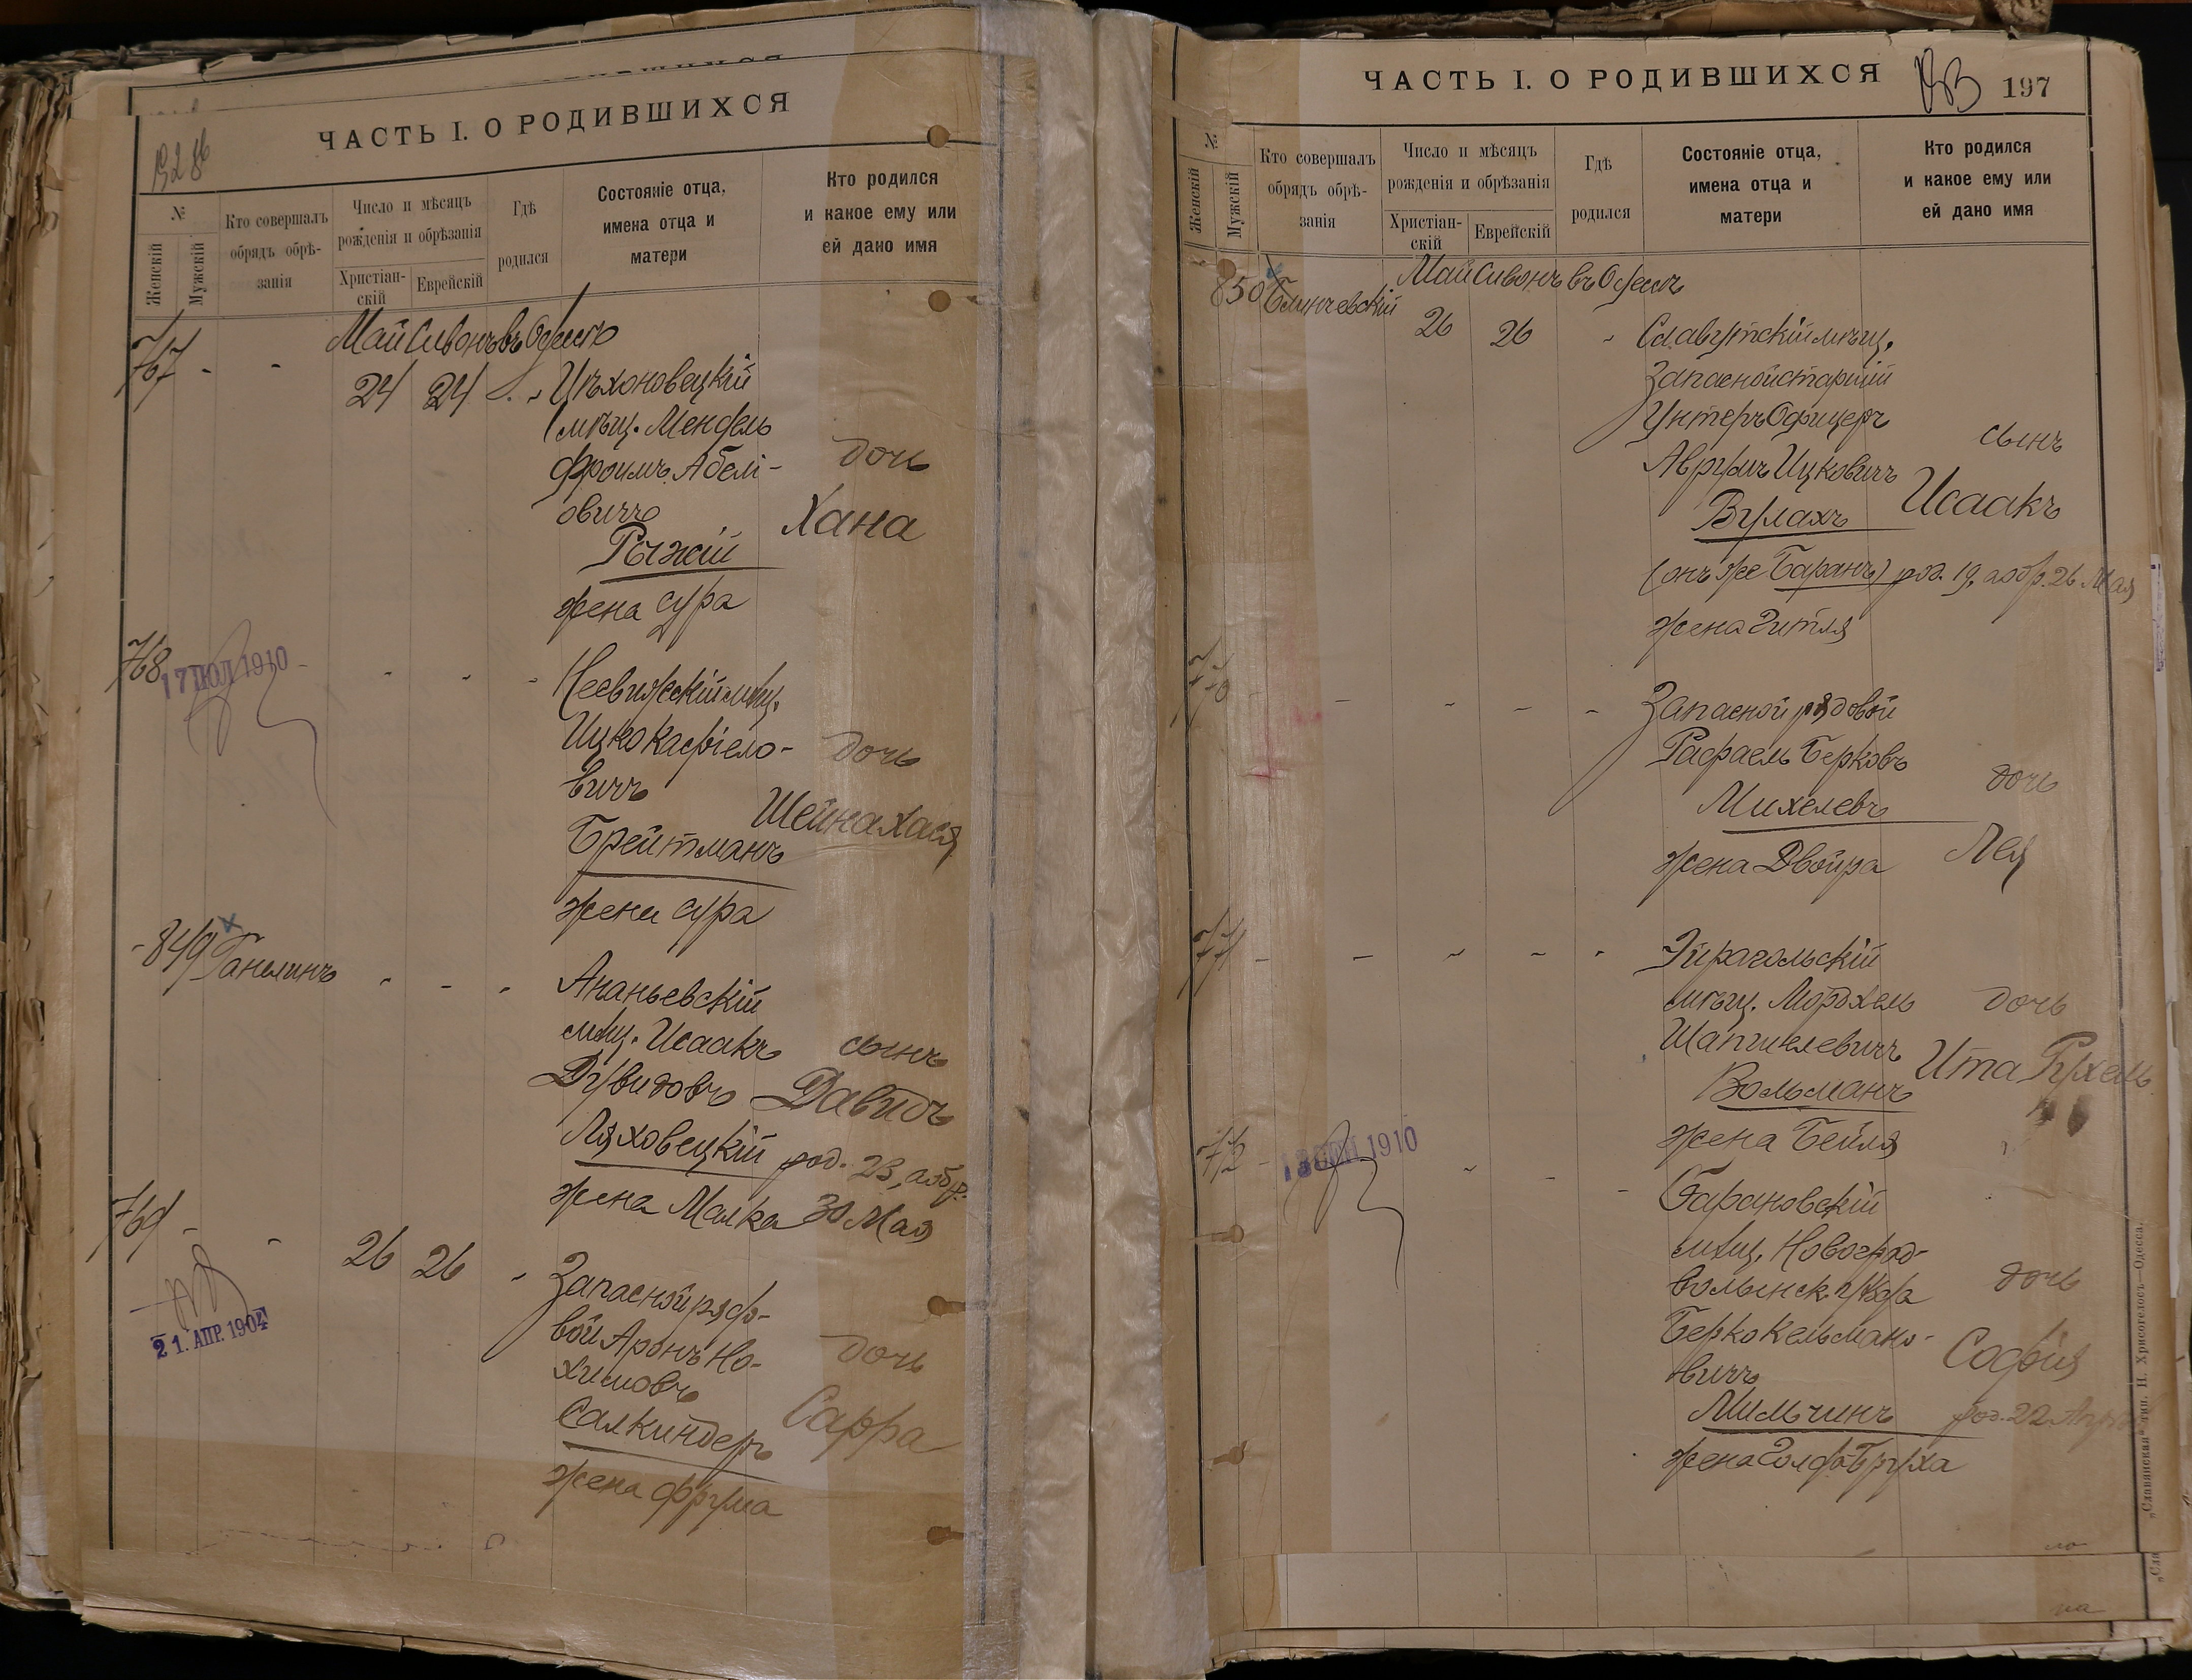 ЧАСТЬ I. О РОДИВШИХСЯ
№
Женскій
Мужскій
Кто совершалъ
обрядъ обрѣ-
занія
Число и мѣсяцъ
рожденія и обрѣзанія
Христіан-
скій
Еврейскій
Гдѣ
родился
Состояніе отца,
имена отца и
матери
Кто родился
и какое ему или
ей дано имя
Май Сивонъ въ Одессѣ
767 - - 24 24
мѣщ. Мендель
Фроимъ Абелі-
овичъ
Рыжій
жена Сура
дочь
Хана
768
17 ІЮЛ 1910
Несвижскій мѣщ.
Ицко
вичъ
Брейтманъ
жена Сура
дочь
Шейна Хася
849 Ганелинъ
Ананьевскій
мѣщ. Исаакъ
Дувидовъ
Ляховецкій
жена Малка
сынъ
Давидъ
род. 23, а обр.
30 Мая
769 - - 26 26
21. АПР. 1904
Запасной рядо-
вой Аронъ Но-
химовъ
Салкиндеръ
жена Фрума
дочь
Сарра
ЧАСТЬ I. О РОДИВШИХСЯ
197
№
Женскій
Мужскій
Кто совершалъ
обрядъ обрѣ-
занія
Число и мѣсяцъ
рожденія и обрѣзанія
Христіан-
скій
Еврейскій
Гдѣ
родился
Состояніе отца,
имена отца и
матери
Кто родился
и какое ему или
ей дано имя
Май Сивонъ въ Одессѣ
850 Блинчевскій 26 26
Славутскій мѣщ.
Запасной старшій
Унтеръ Офицеръ
Аврумъ Ицковичъ
Вулахъ
(онъ же Баранъ) род. 19, а обр. 26 Мая
жена Гитля
сынъ
Исаакъ
770
Запасной рядовой
Рафаель Берковъ
Михелевъ
жена Двойра
дочь
Лея
771
Эйрагольскій
мѣщ. Мордхель
Вольманъ
жена Бейля
дочь
Ита Рухель
772
1910
Барановскій
мѣщ. Новоград-
волынск. уѣзда
Берко Кельмано-
вичъ
Мильчинъ
жена Голда Бруха
дочь
Софія
род. 22
„Славянская“ тип. Н. Хрисогелосъ—Одесса.